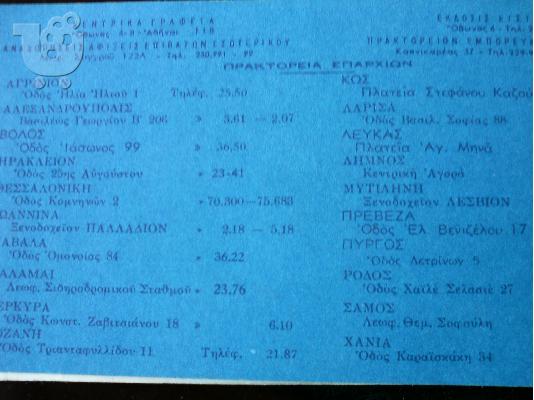 ΚΕΝΤΡΙΚΑ ΓΡΑΦΕΙΑ
Ὄθωνος 4-8 - Ἀθῆναι 118
ΑΝΑΧΩΡΗΣΕΙΣ ΑΦΙΞΕΙΣ ΕΠΙΒΑΤΩΝ ΕΣΩΤΕΡΙΚΟΥ
Λεωφ. Συγγροῦ - Τηλ. 230,991 - 99
ΕΚΔΟΣΙΣ
Ὄθωνος 6 - Τηλ.
ΠΡΑΚΤΟΡΕΙΟΝ
Καπνικαρέας 37 - Τηλ.
ΠΡΑΚΤΟΡΕΙΑ ΕΠΑΡΧΙΩΝ
ΑΓΡΙΝΙΟΝ
Ὁδὸς Ἠλία Ἠλιοῦ 1 Τηλέφ. 25.50
ΑΛΕΞΑΝΔΡΟΥΠΟΛΙΣ
Βασιλέως Γεωργίου Β' 206 » 3.61 — 2.07
ΒΟΛΟΣ
Ὁδὸς Ἰάσωνος 99 » 36,50
ΗΡΑΚΛΕΙΟΝ
Ὁδὸς 25ης Αὐγούστου » 23-41
ΘΕΣΣΑΛΟΝΙΚΗ
Ὁδὸς Κομνηνῶν 2 » 70.300—75.683
ΙΩΑΝΝΙΝΑ
Ξενοδοχεῖον ΠΑΛΛΑΔΙΟΝ » 2.18 — 5,18
ΚΑΒΑΛΑ
Ὁδὸς Ὁμονοίας 84 » 36.22
ΚΑΛΑΜΑΙ
Λεωφ. Σιδηροδρομικοῦ Σταθμοῦ » 23.76
ΚΕΡΚΥΡΑ
Ὁδὸς Κωνστ. Ζαβιτσιάνου 18 » 6.10
ΚΟΖΑΝΗ
Ὁδὸς Τριανταφυλλίδου 11 Τηλέφ. 21.87
ΚΩΣ
Πλατεία Στεφάνου Καζού
ΛΑΡΙΣΑ
Ὁδὸς Βασιλ. Σοφίας 88
ΛΕΥΚΑΣ
Πλατεία Ἁγ. Μηνᾶ
ΛΗΜΝΟΣ
Κεντρικὴ Ἀγορὰ
ΜΥΤΙΛΗΝΗ
Ξενοδοχεῖον ΛΕΣΒΙΟΝ
ΠΡΕΒΕΖΑ
Ὁδὸς Ἐλ. Βενιζέλου 17
ΠΥΡΓΟΣ
Ὁδὸς Λετρίνων 5
ΡΟΔΟΣ
Ὁδὸς Χαϊλὲ Σελασιὲ 27
ΣΑΜΟΣ
Λεωφ. Θεμ. Σοφούλη
ΧΑΝΙΑ
Ὁδὸς Καραϊσκάκη 34